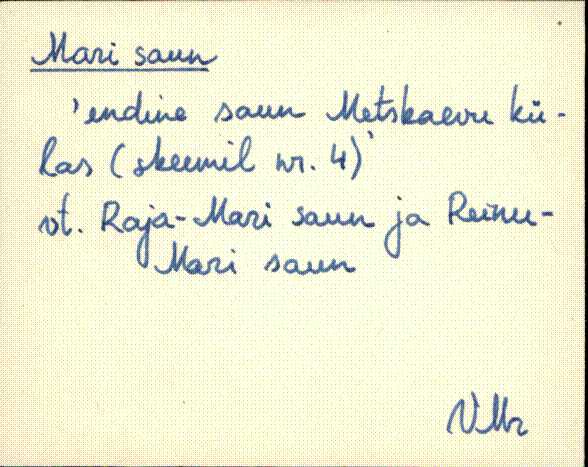 Mari saun
'endine saun Metskaevu kü-
las (skeemil nr. 4)'
vt. Raja-Mari saun ja Reinu-
Mari saun
VMr